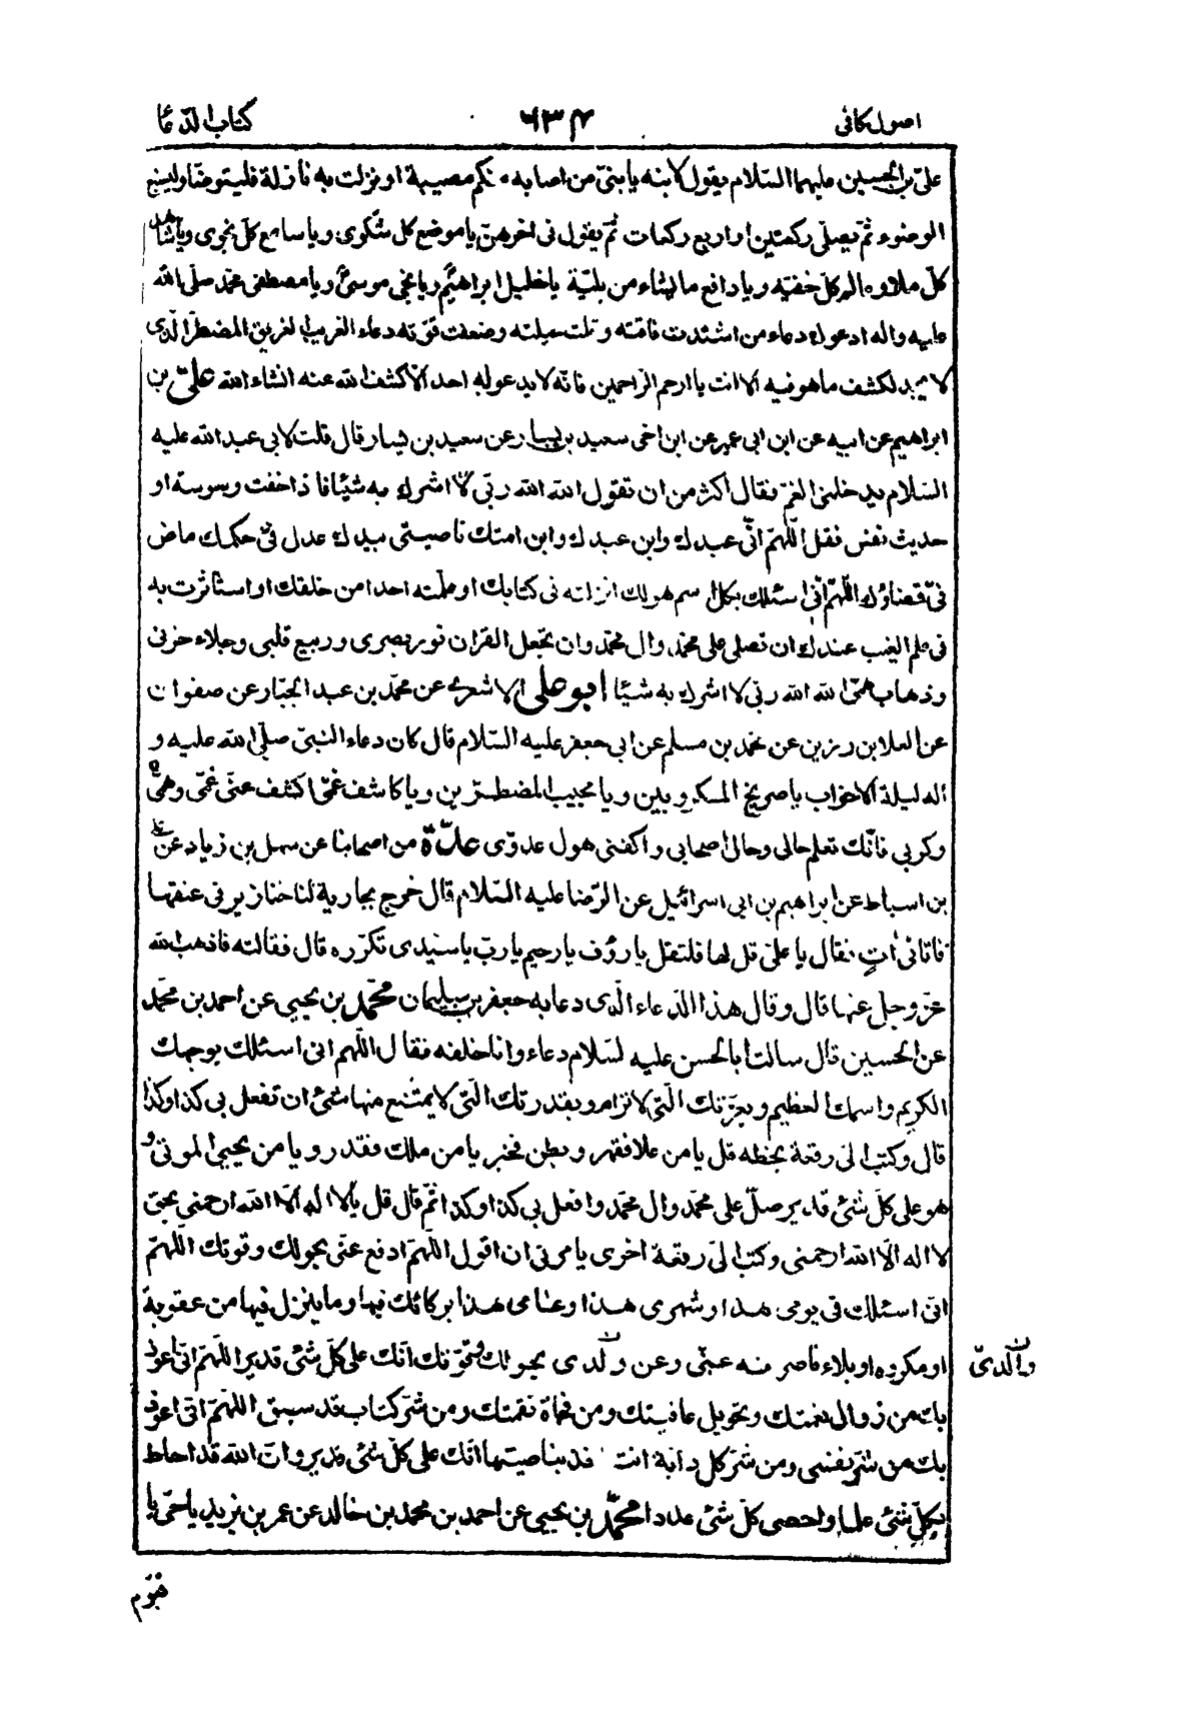 اصول کافی ۶۳۴ کتاب الدعا
علی بن الحسین علیهما السّلام یقول لابنه یا بنیّ من اصابه منکم مصیبة او نزلت به نازلة فلیتوضّا ولیسبغ
الوضوء ثمّ یصلّی رکعتین او اربع رکعات ثم یقول فی اخرهنّ یا موضع کل شکوی و یا سامع کلّ نجوی ویا شاهد
کلّ ملاء وعالم کلّ خفیّه ویا دافع ما یشاء من بلیّة یا خلیل ابراهیم ویا نجی موسی ویا مصطفی محمّد صلّی الله
علیه واله ادعوك دعاء من اشتدت فاقته وقلت حیلته وضعفت قوّته دعاء الغریب الغریق المضطرّ الّذی
لا یجد لکشف ما هو فیه الا انت یا ارحم الرّاحمین فانّه لا یدعو به احد الّا کشف الله عنه انشاء الله علیّ بن
ابراهیم عن ابیه عن ابن ابی عمیر عن ابن اخی سعید بن یسار عن سعید بن یسار قال قلت لابی عبد الله علیه
السّلام یدخلنی الغمّ فقال اکثر من ان تقول الله الله ربّی لا اشرك به شیئا فاذا خفت وسوسة او
حدیث نفس فقل اللّهمّ انّی عبدك وابن عبدك وابن امتك ناصیتی بیدك عدل فیّ حکمك ماض
فیّ قضاؤك اللّهمّ انّی اسئلك بکل اسم هو لك انزلته فی کتابك او علّمته احدا من خلقك او استاثرت به
فی علم الغیب عندك ان تصلی علی محمّد وال محمّد وان تجعل القران نور بصری وربیع قلبی وجلاء حزنی
وذهاب همّی الله الله ربّی لا اشرك به شیئا ابو علی الاشعری عن محمّد بن عبد الجبّار عن صفوان
عن العلا بن رزین عن محمّد بن مسلم عن ابی جعفر علیه السّلام قال کان دعاء النبیّ صلّی الله علیه و
اله لیلة الاحزاب یا صریخ المکروبین ویا مجیب المضطرّین ویا کاشف غمّی اکشف عنّی غمّی وهمّی
وکربی فانّك تعلم حالی وحال اصحابی واکفنی هول عدوّی عدّة من اصحابنا عن سهل بن زیاد عن علی
بن اسباط عن ابراهیم بن ابی اسرائیل عن الرّضا علیه السّلام قال خرج بجاریة لنا خنازیر فی عنقها
فاتانی اتٍ فقال یا علیّ قل لها فلتقل یا رؤف یا رحیم یا ربّ یا سیّدی تکرّره قال فقالته فاذهب الله
عزّ وجلّ عنها قال وقال هذا الدّعاء الّذی دعا به جعفر بن سلیمان محمّد بن یحیی عن احمد بن محمّد
عن الحسین قال سالت ابا الحسن علیه السّلام دعاء وانا خلفه فقال اللّهم انی اسئلك بوجهك
الکریم واسمك العظیم وبعزّتك الّتی لا ترام وبقدرتك الّتی لا یمتنع منها شئ ان تفعل بی کذا وکذا
قال وکتب الی رقعة بخطّه قل یا من علا فقهر وبطن فخبر یا من ملك فقدر ویا من یحیی الموتی و
هو علی کلّ شئ قدیر صلّ علی محمّد وال محمّد وافعل بی کذا وکذا ثمّ قال قل یا لا اله الّا الله ارحمنی بحقّ
لا اله الّا الله ارحمنی وکتب الیّ رقعة اخری یامرنی ان اقول اللّهمّ ادفع عنّی بحولك وقوتك اللّهمّ
انّی اسئلك فی یومی هذا وشهری هذا وعامی هذا برکاتك فیها وما ینزل فیها من عقوبة
او مکروه او بلاء فاصرفه عنّی وعن ولدی بحولك وقوّتك انّك علی کلّ شئ قدیر اللّهمّ انّی اعوذ
بك من زوال نعمتك وتحویل عافیتك ومن فجاة نقمتك ومن شرّ کتاب قد سبق اللّهمّ انّی اعوذ
بك من شرّ نفسی ومن شرّ کل دابّة انت اخذ بناصیتها انّك علی کلّ شئ قدیر وانّ الله قد احاط
بکلّ شئ علما واحصی کلّ شئ عددا محمّد بن یحیی عن احمد بن محمّد بن خالد عن عمر بن یزید یا حیّ یا
والدیّ
قیّوم